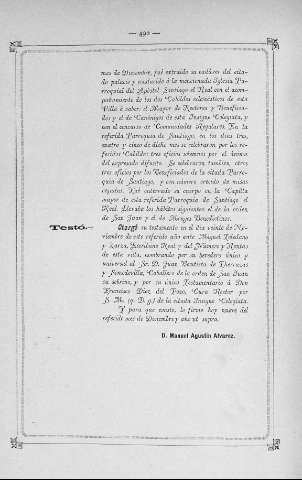 — 490 —
mes de Diciembre, fué extraído su cadáver del cita-
do palacio y conducido á la mencionada Iglesia Pa-
rroquial del Apóstol Santiago el Real con el acom-
pañamiento de los dos Cabildos eclesiásticos de esta
Villa á saber: el Mayor de Rectores y Beneficia-
dos y el de Canónigos de esta Insigne Colegiata, y
con el concurso de Comunidades Regulares. En la
referida Parroquia de Santiago, en los días tres,
cuatro y cinco de dicho mes se celebraron por los re-
feridos Cabildos tres oficios solemnes por el ánima
del expresado difunto. Se celebraron también, otros
tres oficios por los Beneficiados de la citada Parro-
quia de Santiago, y con número crecido de misas
rezadas. Fué enterrado su cuerpo en la Capilla
mayor de esta referida Parroquia de Santiago el
Real. Llevaba los hábitos siguientes el de la orden
de San Juan y el de Monges Benedictinos.
Testó.— Otorgó su testamento en el día veinte de No-
viembre de este referido año ante Miguel
y Zarza, Escribano Real y del Número y Rentas
de esta villa, nombrando por su heredero único y
universal al Sr. D. Juan Bautista de
y Fonsdeviela, Caballero de la orden de San Juan
su sobrino, y por su único Testamentario á Don
Francisco Díez del Pozo, Cura Rector por
S. M. (q. D. g.) de la citada Insigne Colegiata.
Y para que conste, lo firmo hoy nueve del
referido mes de Diciembre y año ut supra.
D. Manuel Agustín Alvarez.